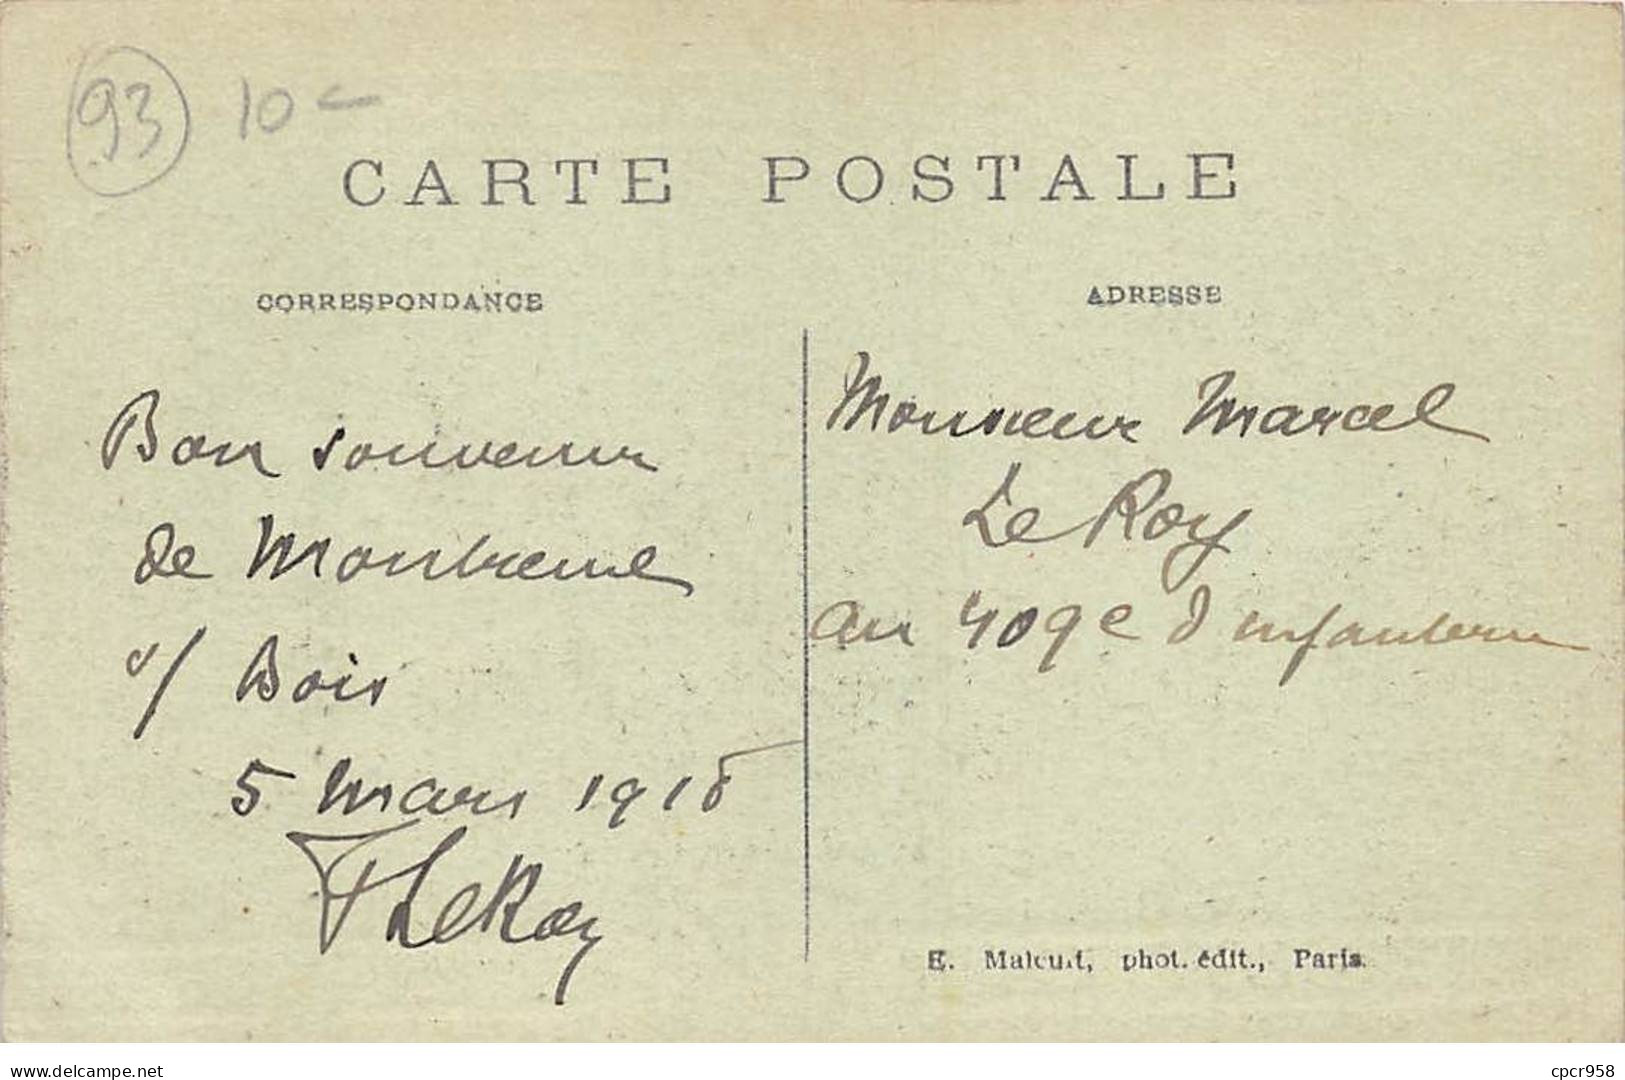 93 10 -
CARTE POSTALE
CORRESPONDANCE
ADRESSE
Bon souvenir
de Montreuil
s/ Bois
5 Mars 1918
F LeRoy
Monsieur Marcel
Le Roy
au 409e d'infanterie
E. Malcuit, phot. édit., Paris.
www.delcampe.net
cpcr958